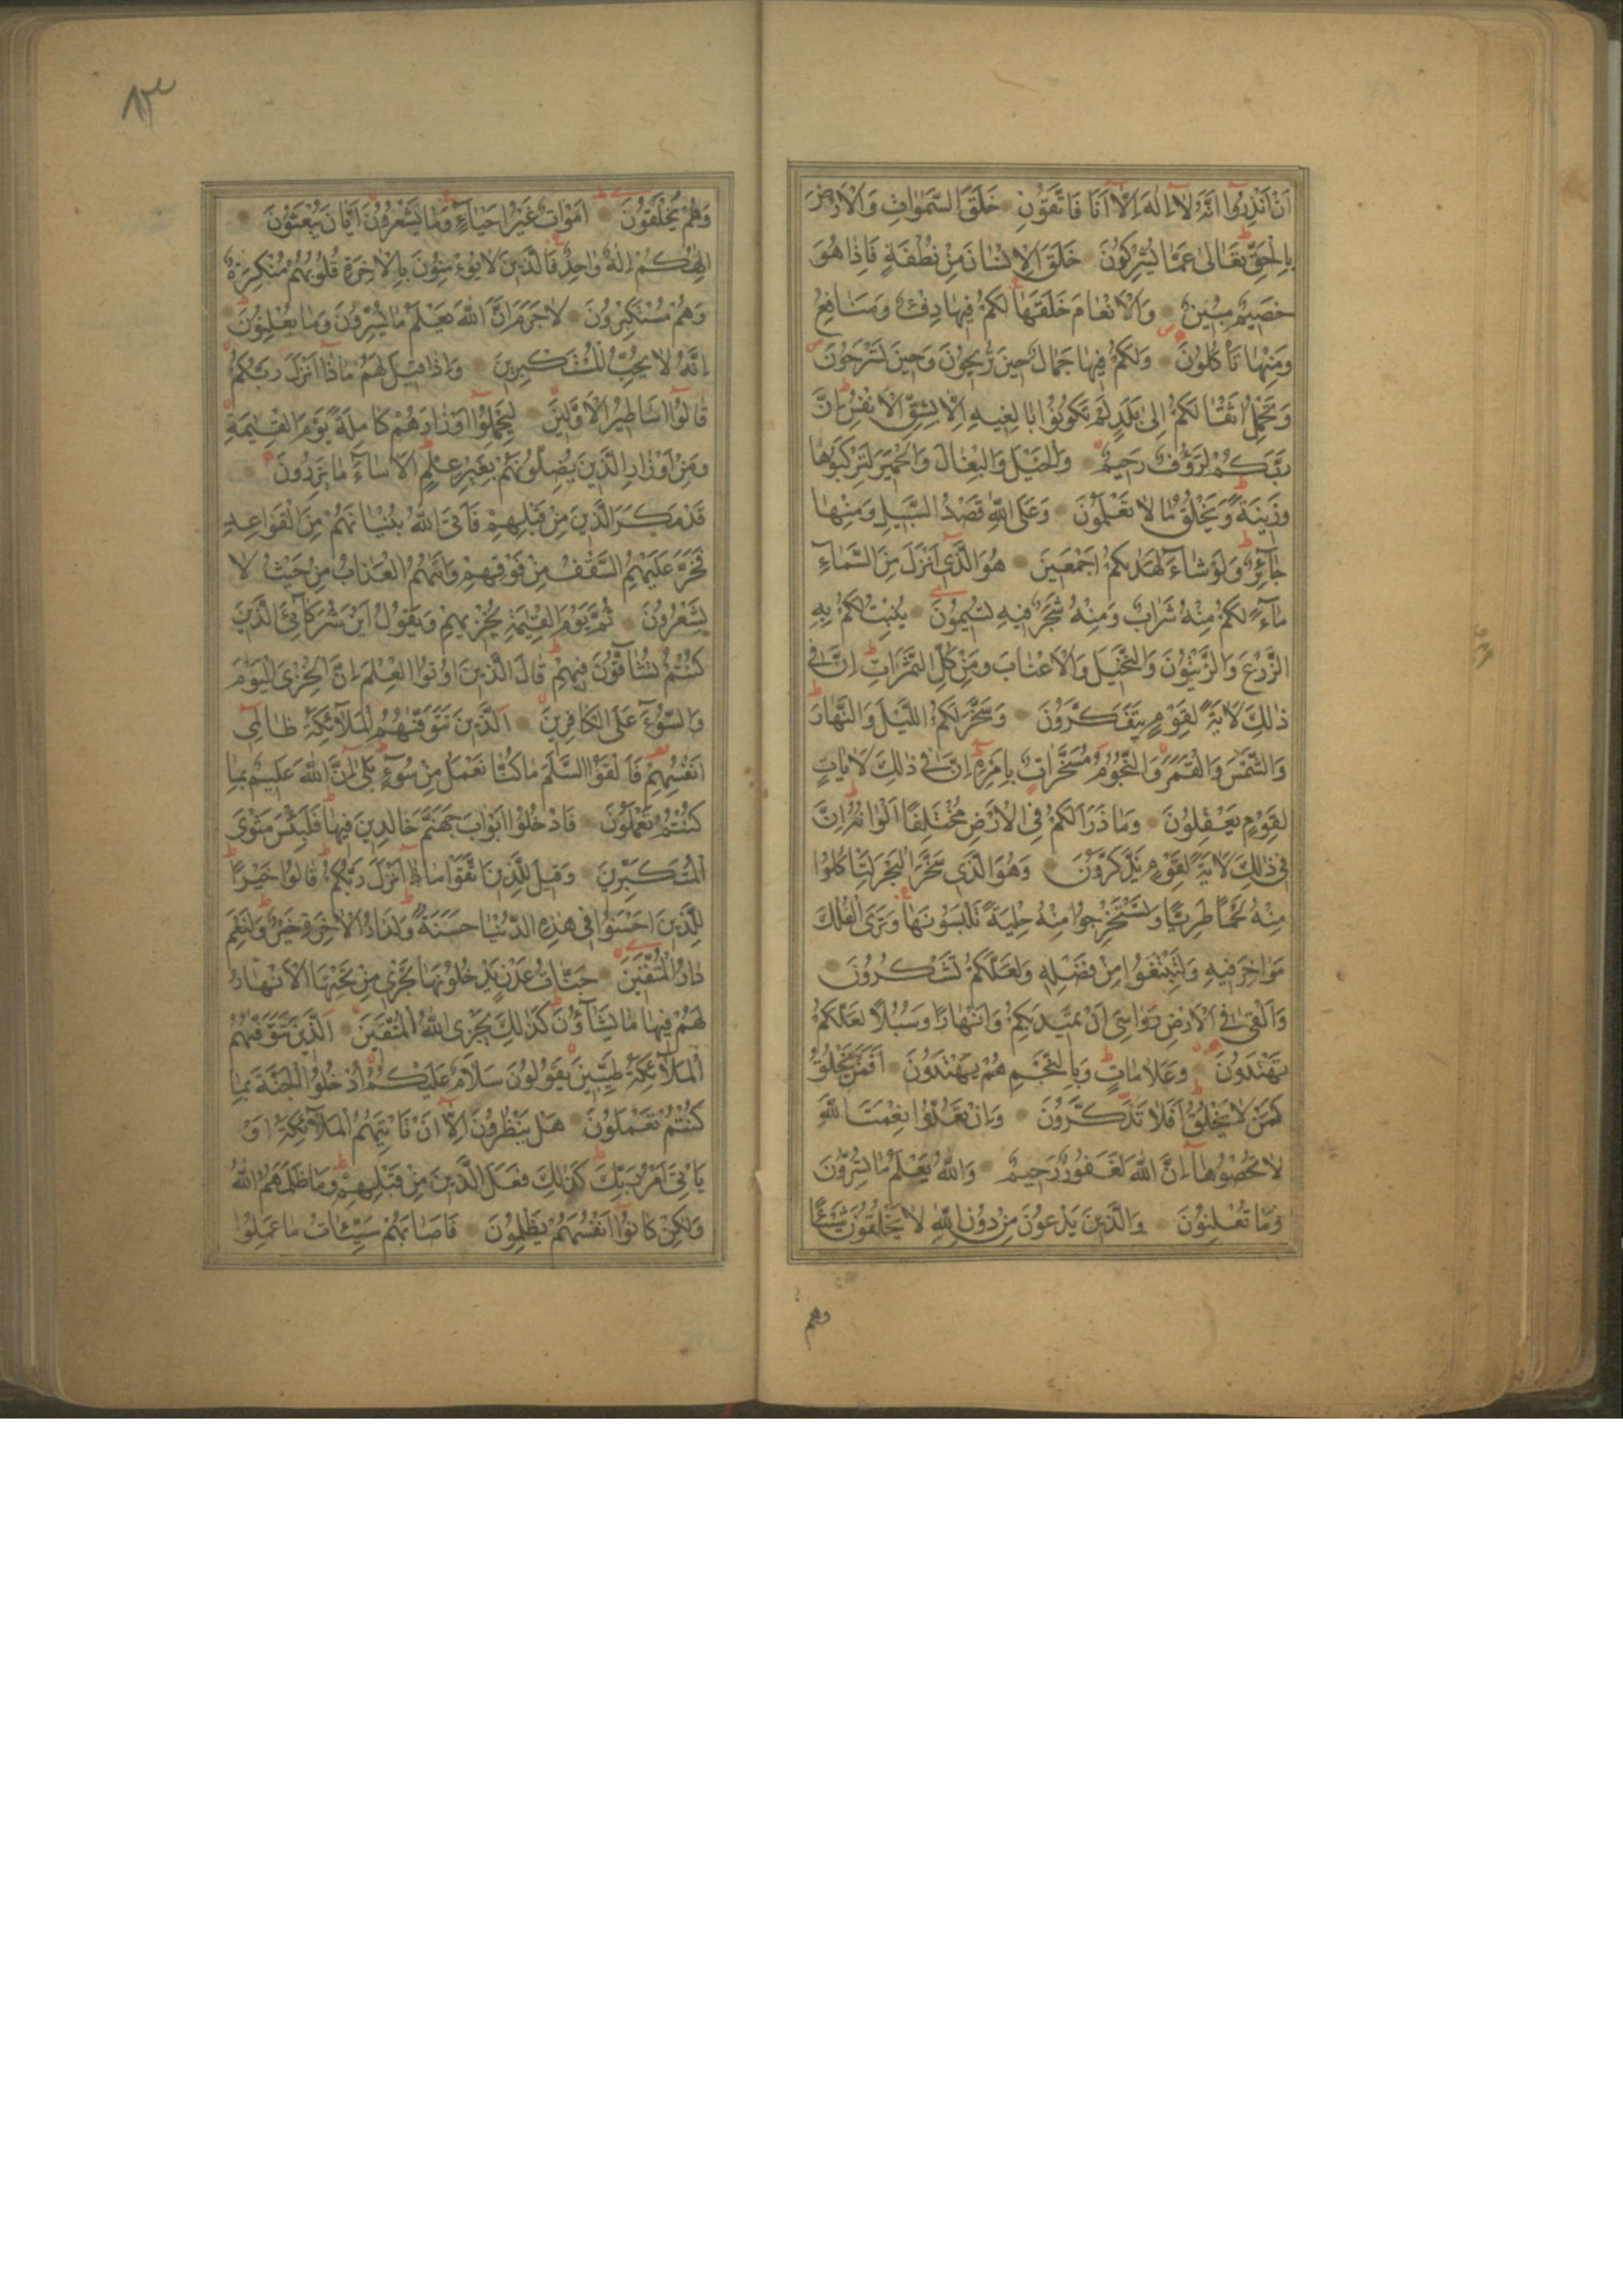 اَنْ اَنْذِرُوٓا اَنَّهُ لٰٓا اِلٰهَ اِلّٰٓا اَنَا فَاتَّقُونِ خَلَقَ السَّمٰوَاتِ وَالْاَرْضَ
بِالْحَقِّ تَعَالىٰ عَمَّا يُشْرِكُونَ خَلَقَ الْاِنْسَانَ مِنْ نُطْفَةٍ فَاِذَا هُوَ
خَصِيمٌ مُبِينٌ وَالْاَنْعَامَ خَلَقَهَا لَكُمْ فِيهَا دِفْءٌ وَمَنَافِعُ
وَمِنْهَا تَأْكُلُونَ وَلَكُمْ فِيهَا جَمَالٌ حِينَ تُرِيحُونَ وَحِينَ تَسْرَحُونَ
وَتَحْمِلُ اَثْقَالَكُمْ اِلىٰ بَلَدٍ لَمْ تَكُونُوا بَالِغِيهِ اِلَّا بِشِقِّ الْاَنْفُسِ اِنَّ
رَبَّكُمْ لَرَؤُفٌ رَحِيمٌ وَالْخَيْلَ وَالْبِغَالَ وَالْحَمِيرَ لِتَرْكَبُوهَا
وَزِينَةً وَيَخْلُقُ مَا لَا تَعْلَمُونَ وَعَلَى اللّٰهِ قَصْدُ السَّبِيلِ وَمِنْهَا
جَآئِرٌ وَلَوْ شَاءَ لَهَدٰيكُمْ اَجْمَعِينَ هُوَ الَّذِٓى اَنْزَلَ مِنَ السَّمَآءِ
مَآءً لَكُمْ مِنْهُ شَرَابٌ وَمِنْهُ شَجَرٌ فِيهِ تُسِيمُونَ يُنْبِتُ لَكُمْ بِهِ
الزَّرْعَ وَالزَّيْتُونَ وَالنَّخِيلَ وَالْاَعْنَابَ وَمِنْ كُلِّ الثَّمَرَاتِ اِنَّ فِى
ذٰلِكَ لَاٰيَةً لِقَوْمٍ يَتَفَكَّرُونَ وَسَخَّرَ لَكُمُ اللَّيْلَ وَالنَّهَارَ
وَالشَّمْسَ وَالْقَمَرَ وَالنُّجُومُ مُسَخَّرَاتٌ بِاَمْرِهِ اِنَّ فِى ذٰلِكَ لَاٰيَاتٍ
لِقَوْمٍ يَعْقِلُونَ وَمَا ذَرَاَ لَكُمْ فِى الْاَرْضِ مُخْتَلِفًا اَلْوَانُهُ اِنَّ
فِى ذٰلِكَ لَاٰيَةً لِقَوْمٍ يَذَّكَّرُونَ وَهُوَ الَّذِى سَخَّرَ الْبَحْرَ لِتَأْكُلُوا
مِنْهُ لَحْمًا طَرِيًّا وَتَسْتَخْرِجُوا مِنْهُ حِلْيَةً تَلْبَسُونَهَا وَتَرَى الْفُلْكَ
مَوَاخِرَ فِيهِ وَلِتَبْتَغُوا مِنْ فَضْلِهِ وَلَعَلَّكُمْ تَشْكُرُونَ
وَاَلْقىٰ فِى الْاَرْضِ رَوَاسِىَ اَنْ تَمِيدَ بِكُمْ وَاَنْهَارًا وَسُبُلًا لَعَلَّكُمْ
تَهْتَدُونَ وَعَلَامَاتٍ وَبِالنَّجْمِ هُمْ يَهْتَدُونَ اَفَمَنْ يَخْلُقُ
كَمَنْ لَا يَخْلُقُ اَفَلَا تَذَكَّرُونَ وَاِنْ تَعُدُّوا نِعْمَتَ اللّٰهِ
لَا تُحْصُوهَا اِنَّ اللّٰهَ لَغَفُورٌ رَحِيمٌ وَاللّٰهُ يَعْلَمُ مَا تُسِرُّونَ
وَمَا تُعْلِنُونَ وَالَّذِينَ يَدْعُونَ مِنْ دُونِ اللّٰهِ لَا يَخْلُقُونَ شَيْئًا
وهم
٨٣
وَهُمْ يُخْلَقُونَ اَمْوَاتٌ غَيْرُ اَحْيَآءٍ وَمَا يَشْعُرُونَ اَيَّانَ يُبْعَثُونَ
اِلٰهُكُمْ اِلٰهٌ وَاحِدٌ فَالَّذِينَ لَا يُؤْمِنُونَ بِالْاٰخِرَةِ قُلُوبُهُمْ مُنْكِرَةٌ
وَهُمْ مُسْتَكْبِرُونَ لَا جَرَمَ اَنَّ اللّٰهَ يَعْلَمُ مَا يُسِرُّونَ وَمَا يُعْلِنُونَ
اِنَّهُ لَا يُحِبُّ الْمُسْتَكْبِرِينَ وَاِذَا قِيلَ لَهُمْ مَاذَٓا اَنْزَلَ رَبُّكُمْ
قَالُوٓا اَسَاطِيرُ الْاَوَّلِينَ لِيَحْمِلُوٓا اَوْزَارَهُمْ كَامِلَةً يَوْمَ الْقِيٰمَةِ
وَمِنْ اَوْزَارِ الَّذِينَ يُضِلُّونَهُمْ بِغَيْرِ عِلْمٍ اَلَا سَآءَ مَا يَزِرُونَ
قَدْ مَكَرَ الَّذِينَ مِنْ قَبْلِهِمْ فَاَتَى اللّٰهُ بُنْيَانَهُمْ مِنَ الْقَوَاعِدِ
فَخَرَّ عَلَيْهِمُ السَّقْفُ مِنْ فَوْقِهِمْ وَاَتٰيهُمُ الْعَذَابُ مِنْ حَيْثُ لَا
يَشْعُرُونَ ثُمَّ يَوْمَ الْقِيٰمَةِ يُخْزِيهِمْ وَيَقُولُ اَيْنَ شُرَكَآئِىَ الَّذِينَ
كُنْتُمْ تُشَآقُّونَ فِيهِمْ قَالَ الَّذِينَ اُوتُوا الْعِلْمَ اِنَّ الْخِزْىَ الْيَوْمَ
وَالسُّوٓءَ عَلَى الْكَافِرِينَ اَلَّذِينَ تَتَوَفّٰيهُمُ الْمَلٰٓائِكَةُ ظَالِمِٓى
اَنْفُسِهِمْ فَاَلْقَوُا السَّلَمَ مَا كُنَّا نَعْمَلُ مِنْ سُوٓءٍ بَلٰٓى اِنَّ اللّٰهَ عَلِيمٌ بِمَا
كُنْتُمْ تَعْمَلُونَ فَادْخُلُوٓا اَبْوَابَ جَهَنَّمَ خَالِدِينَ فِيهَا فَلَبِئْسَ مَثْوَى
الْمُتَكَبِّرِينَ وَقِيلَ لِلَّذِينَ اتَّقَوْا مَاذَٓا اَنْزَلَ رَبُّكُمْ قَالُوا خَيْرًا
لِلَّذِينَ اَحْسَنُوا فِى هٰذِهِ الدُّنْيَا حَسَنَةٌ وَلَدَارُ الْاٰخِرَةِ خَيْرٌ وَلَنِعْمَ
دَارُ الْمُتَّقِينَ جَنَّاتُ عَدْنٍ يَدْخُلُونَهَا تَجْرِى مِنْ تَحْتِهَا الْاَنْهَارُ
لَهُمْ فِيهَا مَا يَشَآؤُنَ كَذٰلِكَ يَجْزِى اللّٰهُ الْمُتَّقِينَ اَلَّذِينَ تَتَوَفّٰيهُمُ
الْمَلٰٓائِكَةُ طَيِّبِينَ يَقُولُونَ سَلَامٌ عَلَيْكُمُ ادْخُلُوا الْجَنَّةَ بِمَا
كُنْتُمْ تَعْمَلُونَ هَلْ يَنْظُرُونَ اِلَّٓا اَنْ تَأْتِيَهُمُ الْمَلٰٓائِكَةُ اَوْ
يَأْتِىَ اَمْرُ رَبِّكَ كَذٰلِكَ فَعَلَ الَّذِينَ مِنْ قَبْلِهِمْ وَمَا ظَلَمَهُمُ اللّٰهُ
وَلٰكِنْ كَانُوٓا اَنْفُسَهُمْ يَظْلِمُونَ فَاَصَابَهُمْ سَيِّئَاتُ مَا عَمِلُوا